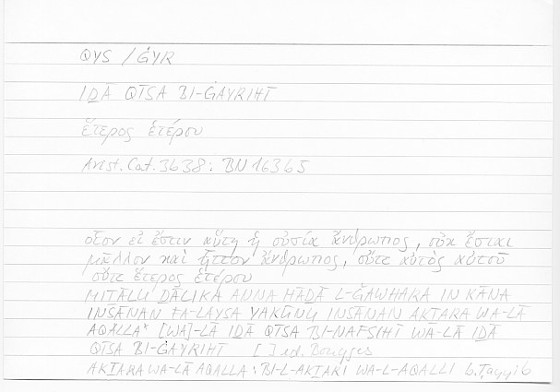 QYS / ĠYR
IḎĀ QĪSA BI-ĠAYRIHĪ
ἕτερος ἑτέρου
Arist. Cat. 3b38 : BN 163b5
οἷον εἰ ἔστιν αὕτη ἡ οὐσία ἄνθρωπος, οὐκ ἔσται
μᾶλλον καὶ ἧττον ἄνθρωπος, οὔτε αὐτὸς αὑτοῦ
οὔτε ἕτερος ἑτέρου
MIṮĀLU ḎĀLIKA ANNA HĀḎĀ L-ĠAWHARA IN KĀNA
INSĀNAN FA-LAYSA YAKŪNU INSĀNAN AKṮARA WA-LĀ
AQALLA* [WA]-LĀ IḎĀ QĪSA BI-NAFSIHĪ WA-LĀ IḎĀ
QĪSA BI-ĠAYRIHĪ [ ] ad. Bouyges
AKṮARA WA-LĀ AQALLA : BI-L-AKṮARI WA-L-AQALLI b. Ṭayyib